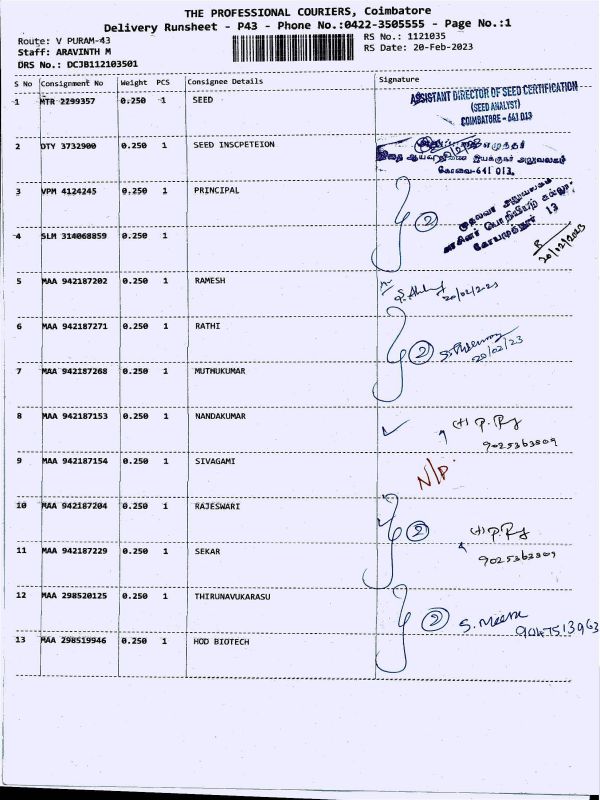 THE PROFESSIONAL COURIERS, Coimbatore
Delivery Runsheet - P43 - Phone No.:0422-3505555 - Page No.:1
Route: V PURAM-43
RS No.: 1121035
Staff: ARAVINTH M
RS Date: 20-Feb-2023
DRS No.: DCJB112103501
S No Consignment No Weight PCS Consignee Details Signature
1 MTR 2299357 0.250 1 SEED
ASSISTANT DIRECTOR OF SEED CERTIFICATION
(SEED ANALYST)
COIMBATORE - 641 013
2 DTY 3732900 0.250 1 SEED INSCPETEION
இயக்குநர் அலுவலகம்
கோவை-641 013.
3 VPM 4124245 0.250 1 PRINCIPAL
2
13
20/02/2023
4 SLM 314068859 0.250 1
5 MAA 942187202 0.250 1 RAMESH
20/02/2023
6 MAA 942187271 0.250 1 RATHI
2
20/02/23
7 MAA 942187268 0.250 1 MUTHUKUMAR
8 MAA 942187153 0.250 1 NANDAKUMAR
9025363809
9 MAA 942187154 0.250 1 SIVAGAMI
N/P
10 MAA 942187204 0.250 1 RAJESWARI
2
11 MAA 942187229 0.250 1 SEKAR
12 MAA 298520125 0.250 1 THIRUNAVUKARASU
2 S. Meena
9047513963
13 MAA 298519946 0.250 1 HOD BIOTECH